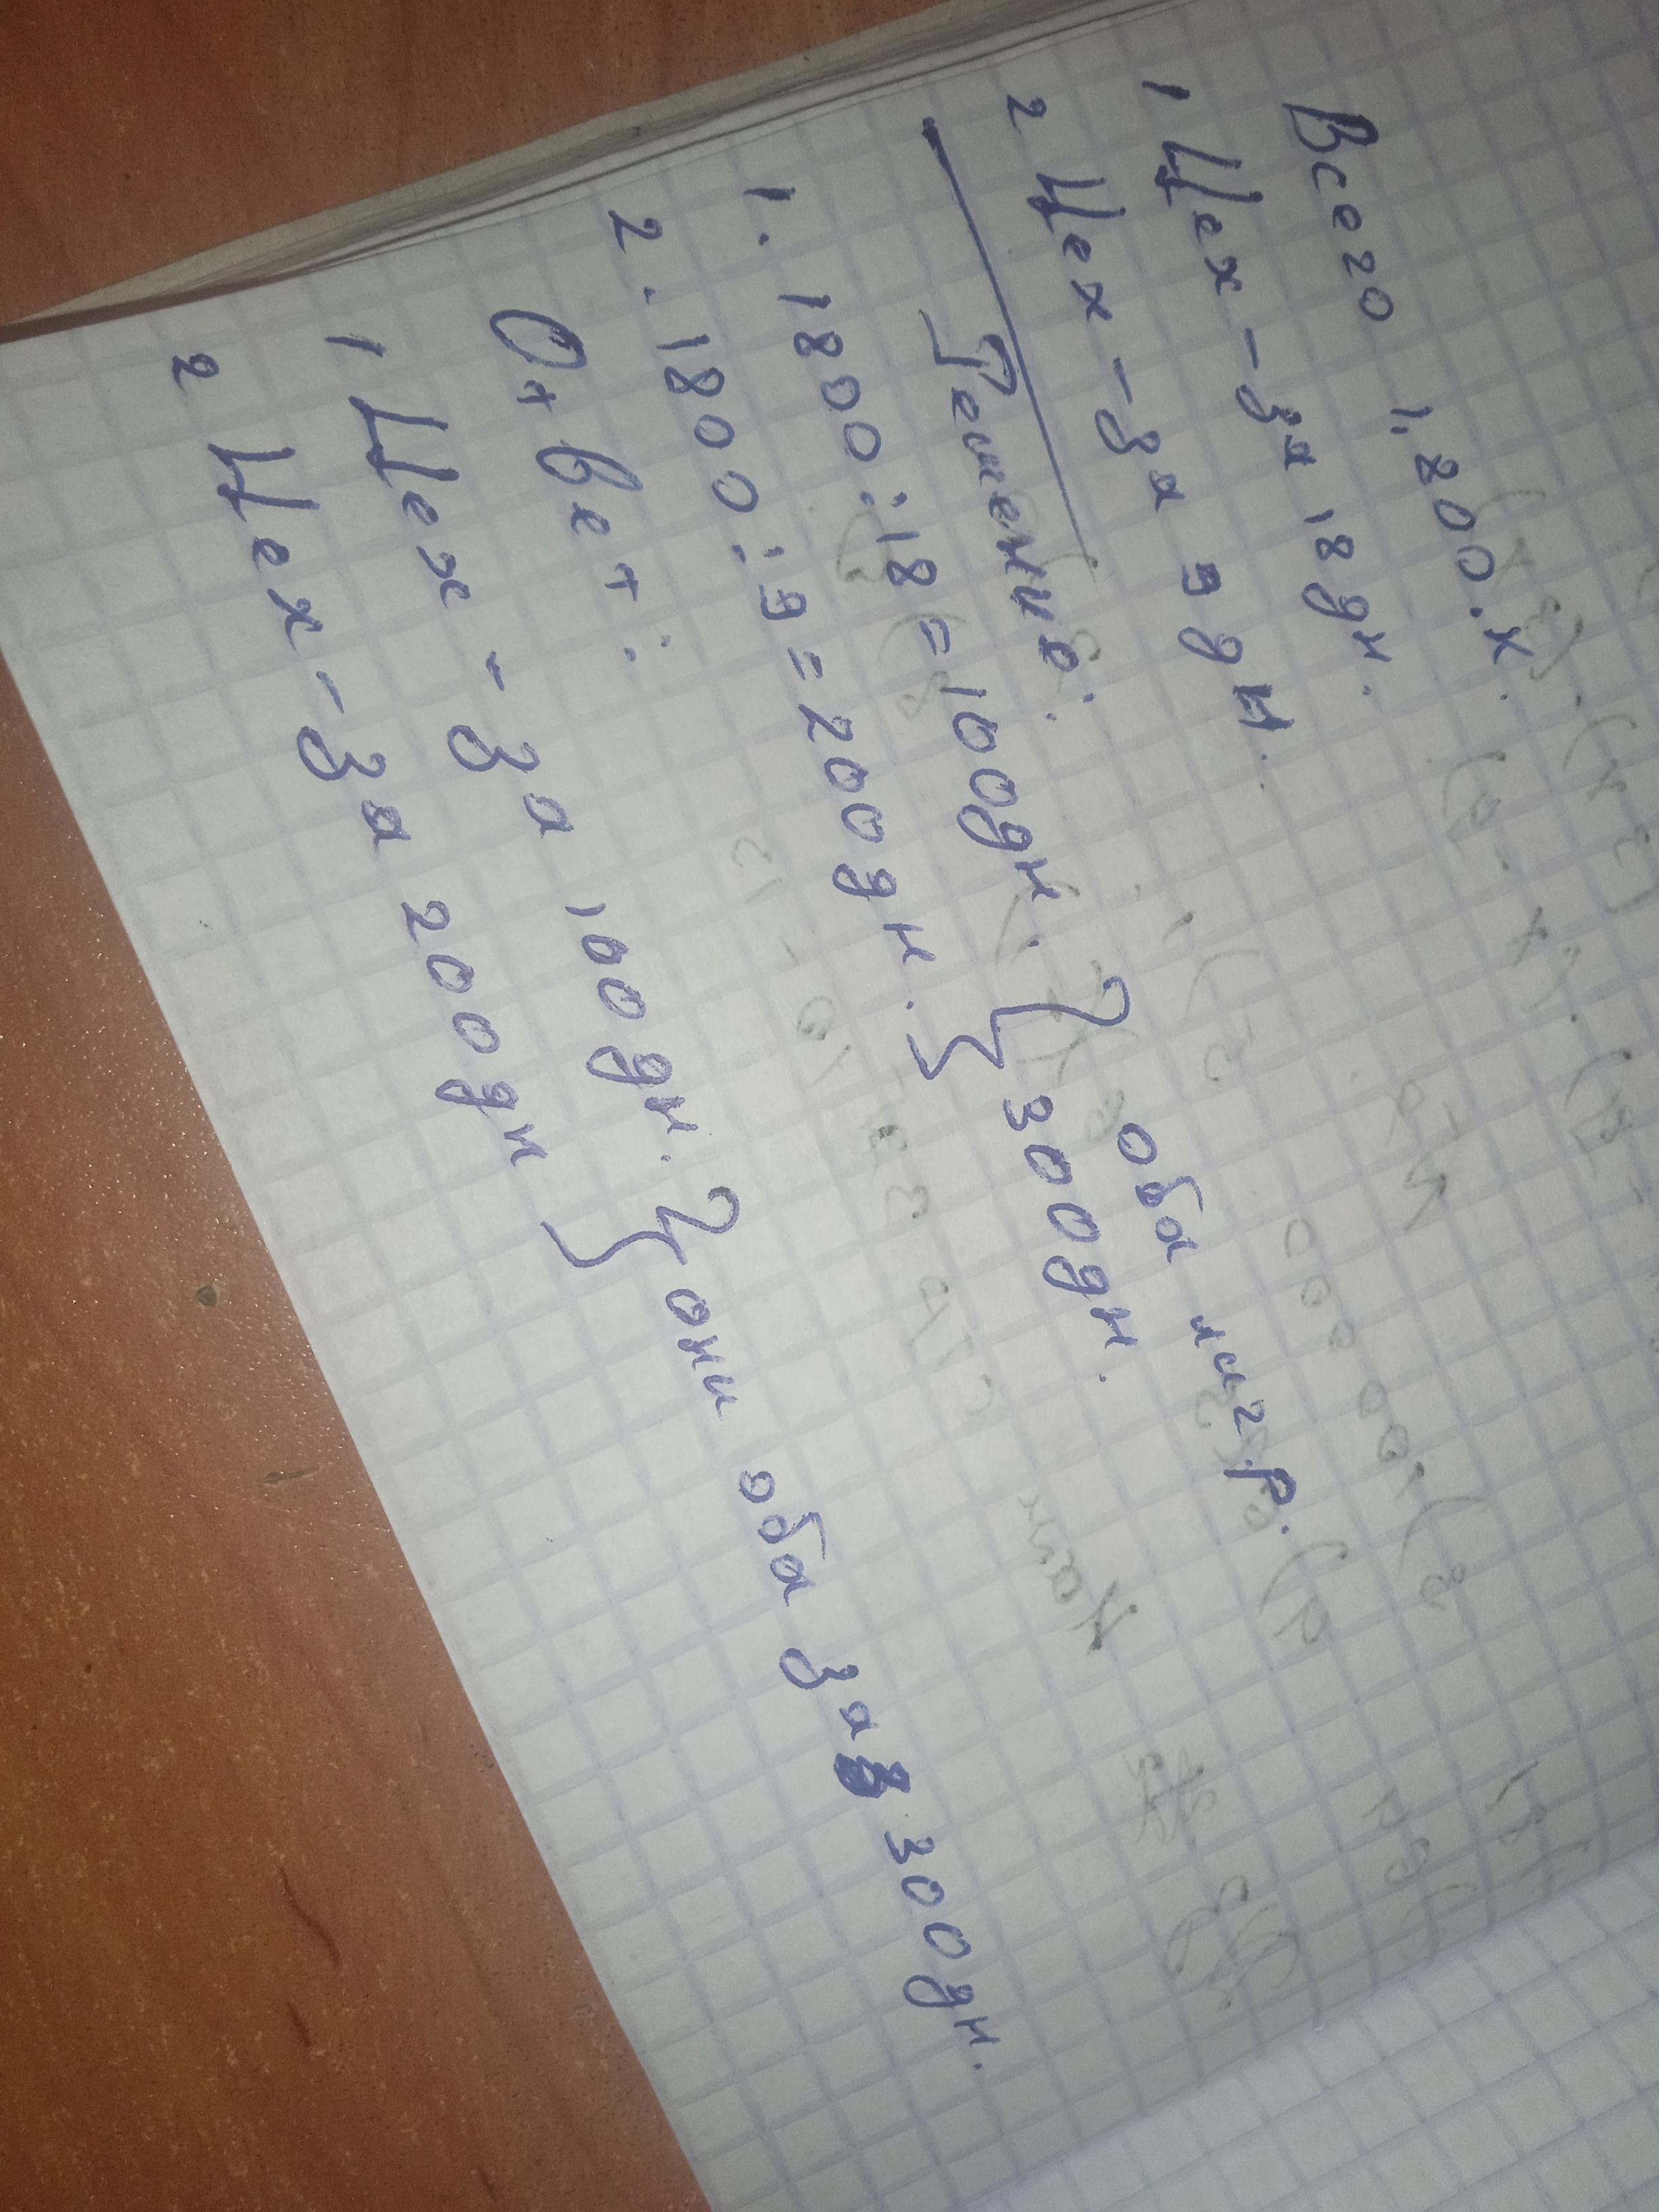 Всего 1.200.к.
1 Цех - за 18 дн.
2 Цех - за 9 дн.
Решение:
1. 1800:18=100дн.
2. 1800:9=200дн.
} 300дн.
оба
Ответ:
1 Цех - за 100 дн.
2 Цех - за 200 дн
} они оба за 300 дн.